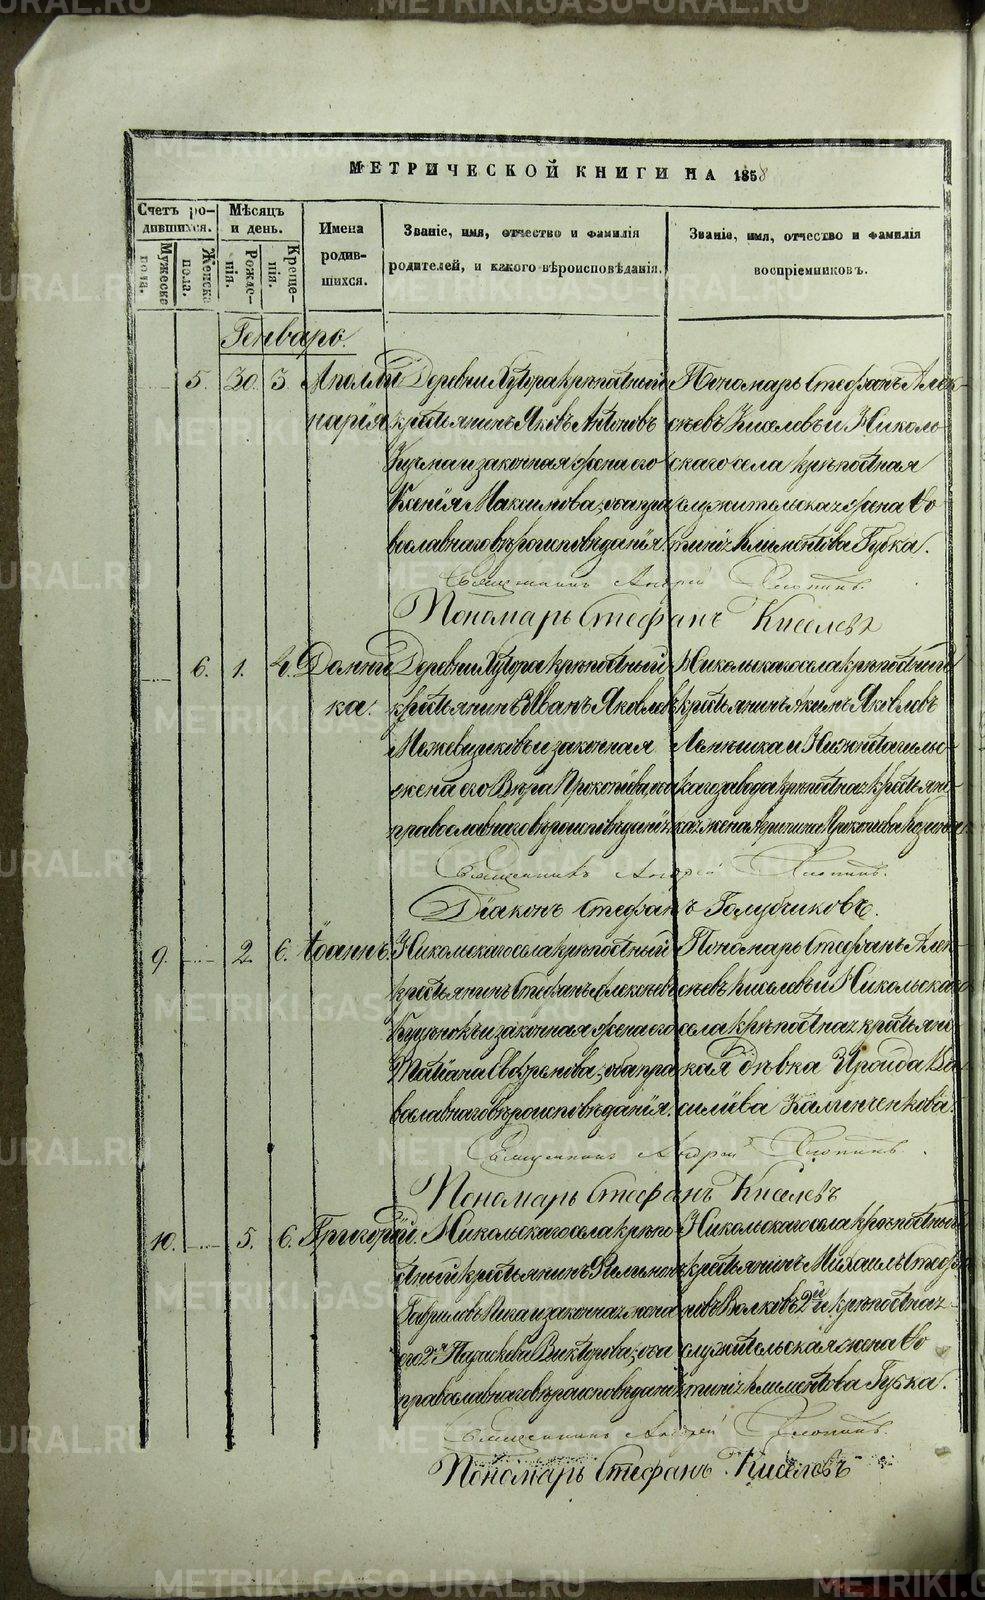 МЕТРИЧЕСКОЙ КНИГИ НА 1858
Счетъ ро-
дившихся.
Мужеска
пола.
Женска
пола.
Мѣсяцъ
и день.
Рожде-
нія.
Креще-
нія.
Имена
родив-
шихся.
Званіе, имя, отчество и фамилія
родителей, и какого вѣроисповѣданія.
Званіе, имя, отчество и фамилія
воспріемниковъ.
Генварь.
5. 30. 3.
Аполли-
нарія
Деревни Хутора крѣпостный
крестьянинъ Яковъ Антоновъ
и законная жена его
Ксенія Максимова, оба пра
вославнаго вѣроисповѣданія
Пономарь Стефанъ Алек-
сѣевъ Киселевъ и Николь
скаго села крѣпостная
служительская жена Ѳо
тинія Климентова Губка.
Священникъ Андрей Хлопинъ.
Пономарь Стефанъ Киселевъ
6. 1. 4.
Домни
ка.
Деревни Хутора крѣпостный
крестьянинъ Иванъ Яковлевъ
и законная
жена его Вѣра Прокопіева, оба
православнаго вѣроисповѣданія
Никольскаго села крѣпостный
крестьянинъ Акимъ Яковлевъ
и Нижнетагиль-
скаго завода крѣпостная крестьян-
ская жена Агрипина Прокопьева
Священникъ Андрей Хлопинъ.
Діаконъ Стефанъ Голубчиковъ.
9. 2. 6.
Іоаннъ.
Никольскаго села крѣпостный
крестьянинъ Стефанъ Алексѣевъ
и законная жена его
Татіана Евфремова, оба пра
вославнаго вѣроисповѣданія.
Пономарь Стефанъ Алек-
сѣевъ Киселевъ и Никольскаго
села крѣпостная крестьянс-
кая дѣвка Ираида Ва
силіева Калиниченкова.
Священникъ Андрей Хлопинъ.
Пономарь Стефанъ Киселевъ
10. 5. 6.
Григорій.
Никольскаго села крѣпо
стный крестьянинъ Филимонъ
Гавриловъ и законная жена
его 2я Параскева Викторова, оба
православнаго вѣроисповѣданія
Никольскаго села крѣпостный
крестьянинъ Михаилъ Стефа
новъ Волковъ 2й и крѣпостная
служительская жена Ѳо
тинія Климентова Губка.
Священникъ Андрей Хлопинъ.
Пономарь Стефанъ Киселевъ
METRIKI.GASO-URAL.RU